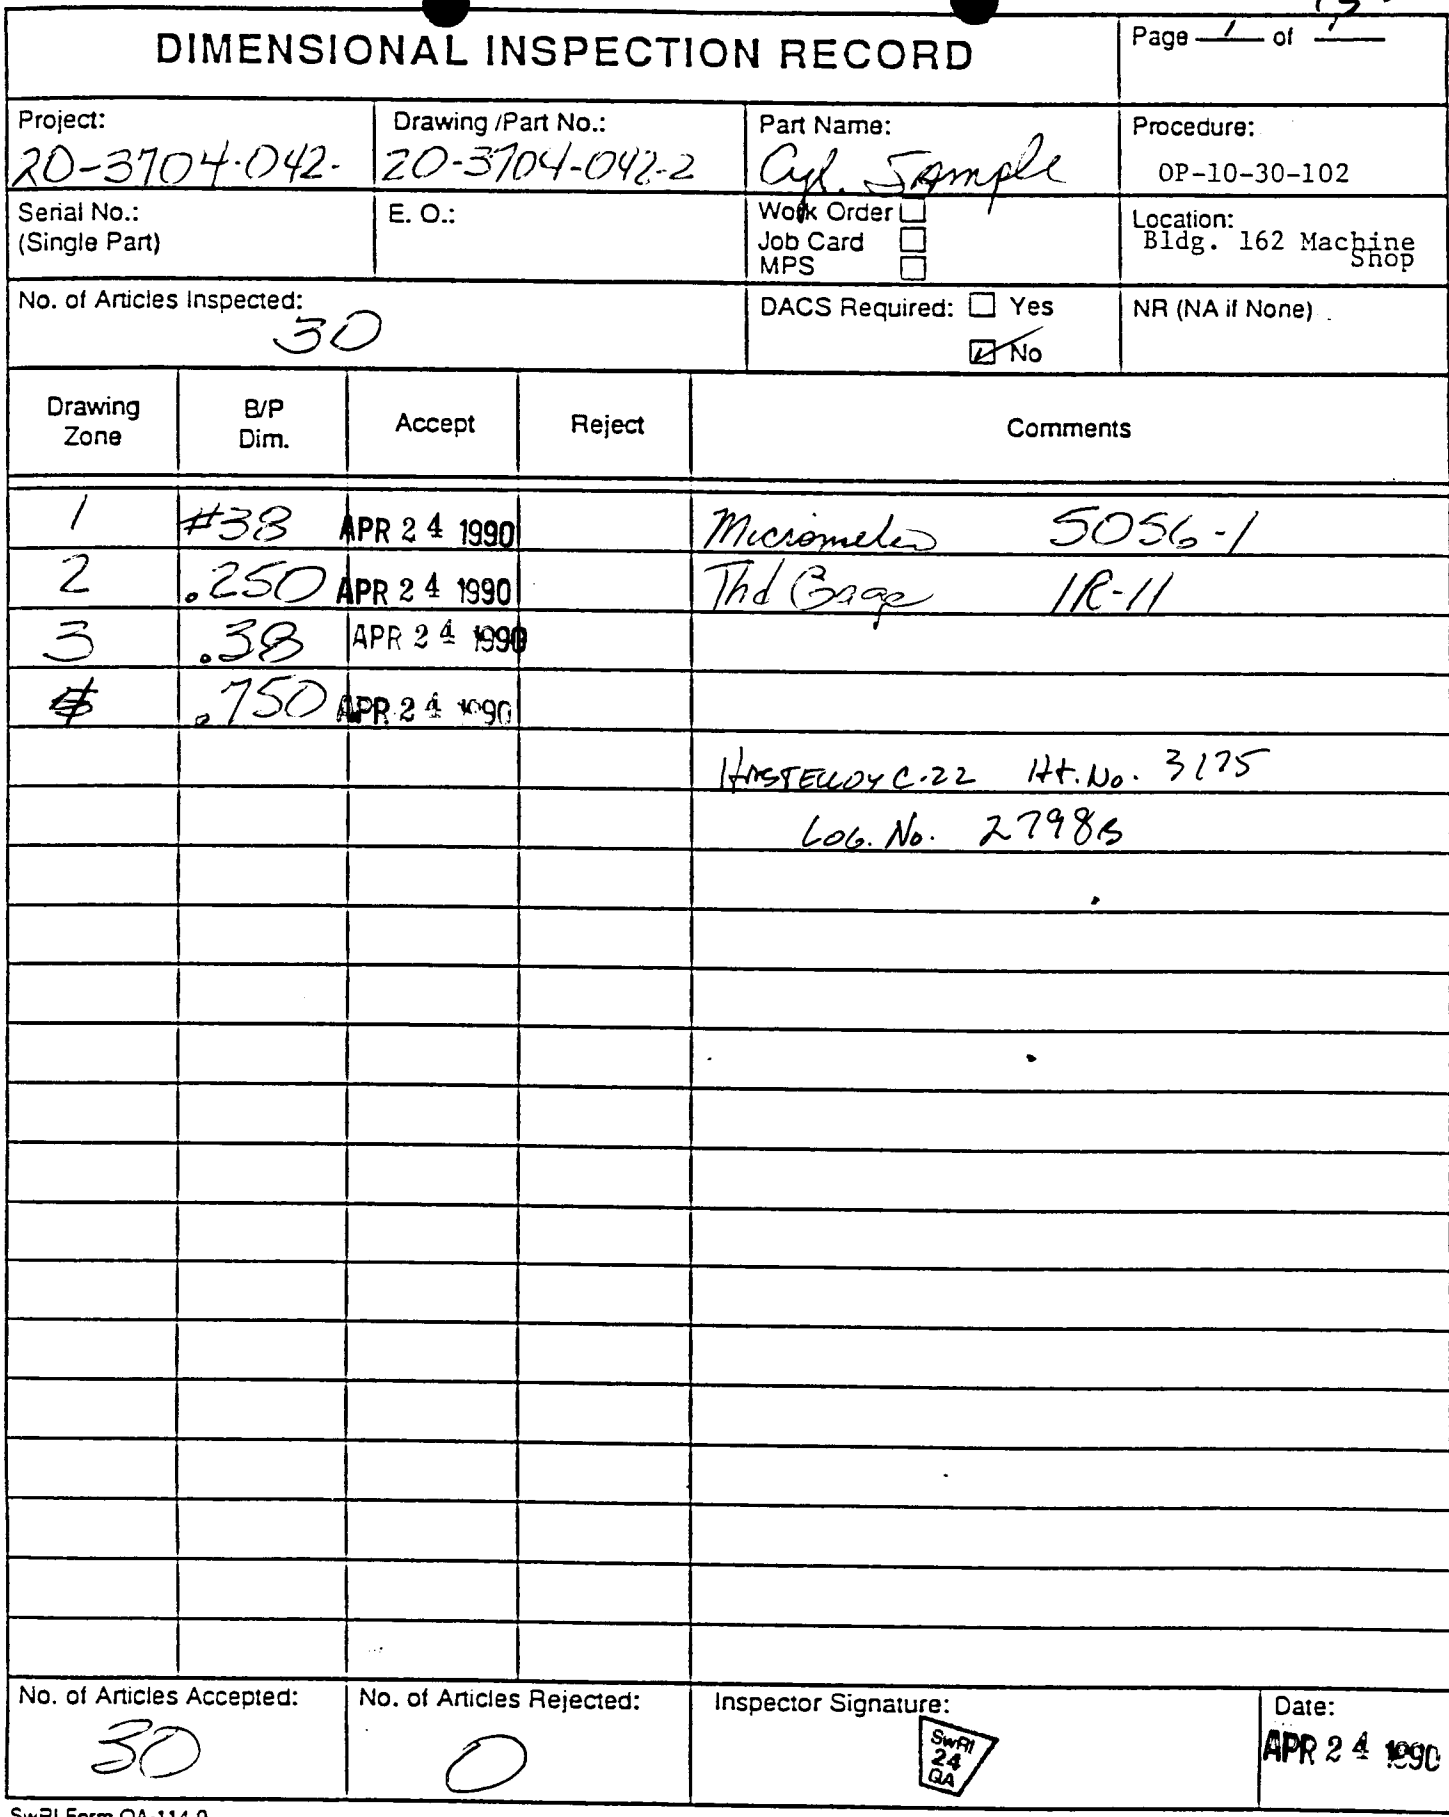 DIMENSIONAL INSPECTION RECORD
Page 1 of
Project:
20-3704-042-
Drawing /Part No.:
20-3704-042-2
Part Name:
Cyl. Sample
Procedure:
OP-10-30-102
Serial No.:
(Single Part)
E. O.:
Work Order
Job Card
MPS
Location:
Bldg. 162 Machine
Shop
No. of Articles Inspected:
30
DACS Required: Yes
No
NR (NA if None)
Drawing
Zone
B/P
Dim.
Accept
Reject
Comments
1 #38 APR 24 1990 Micrometer 5056-1
2 .250 APR 24 1990 Thd Gage IR-11
3 .38 APR 24 1990
4 .750 APR 24 1990
HASTELLOY C-22 Ht. No. 3175
LOG. No. 2798B
No. of Articles Accepted:
30
No. of Articles Rejected:
0
Inspector Signature:
SwRI
24
QA
Date:
APR 24 1990
SwRI Form QA-114-0